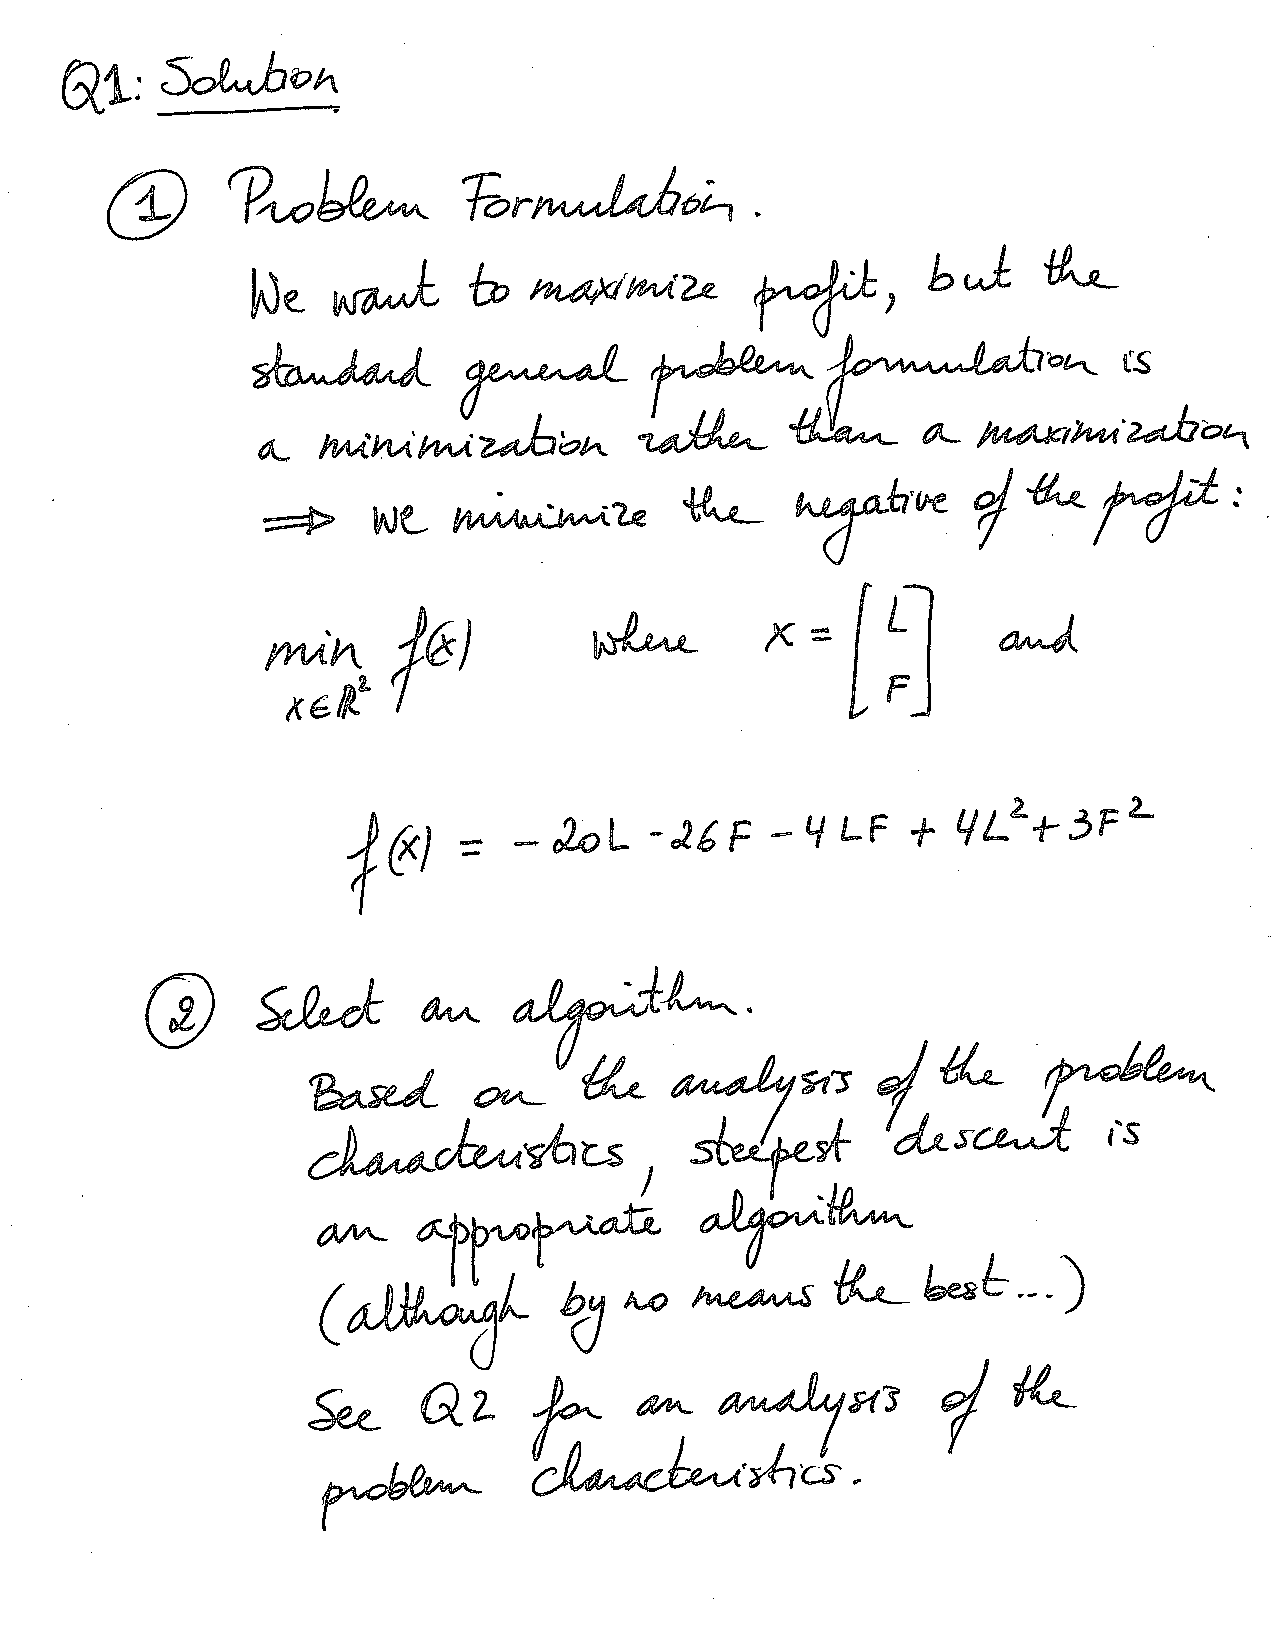 Q1: Solution
① Problem Formulation.
We want to maximize profit, but the
standard general problem formulation is
a minimization rather than a maximization
⇒ we minimize the negative of the profit:
min f(x) where x = [L F] and
x∈ℝ²
f(x) = -20L - 26F - 4LF + 4L² + 3F²
② Select an algorithm.
Based on the analysis of the problem
characteristics, steepest descent is
an appropriate algorithm
(although by no means the best...)
See Q2 for an analysis of the
problem characteristics.